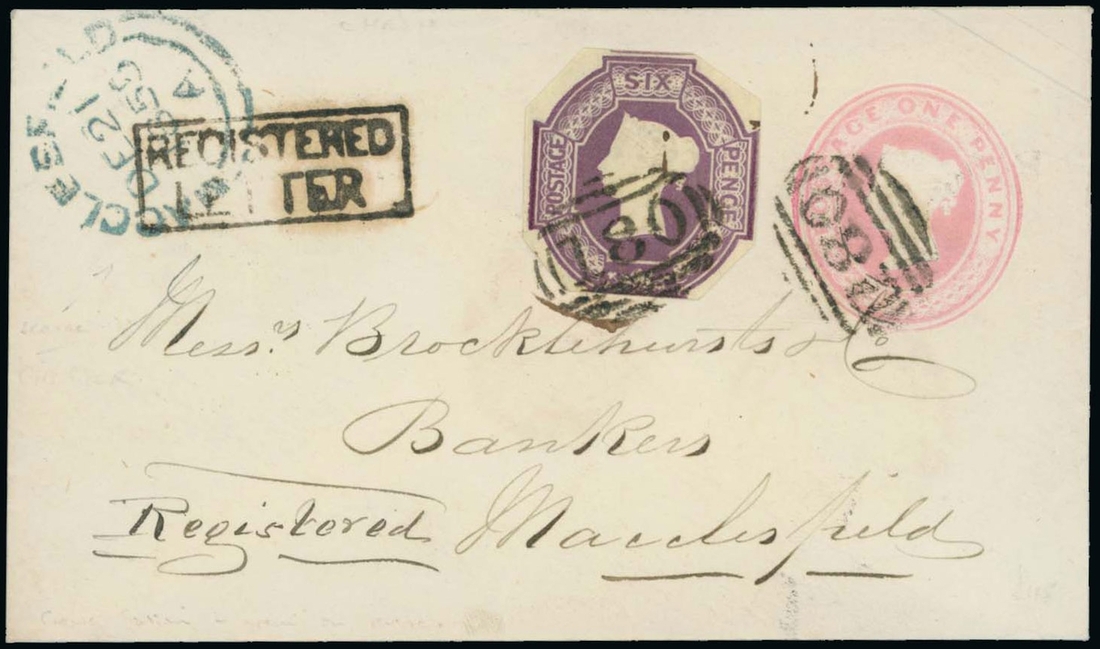 MACCLESFIELD
DE 21
A
REGISTERED
LETTER
POSTAGE SIX PENCE
POSTAGE ONE PENNY
180
180
Mess.rs Brocklehursts & Co
Bankers
Registered Macclesfield